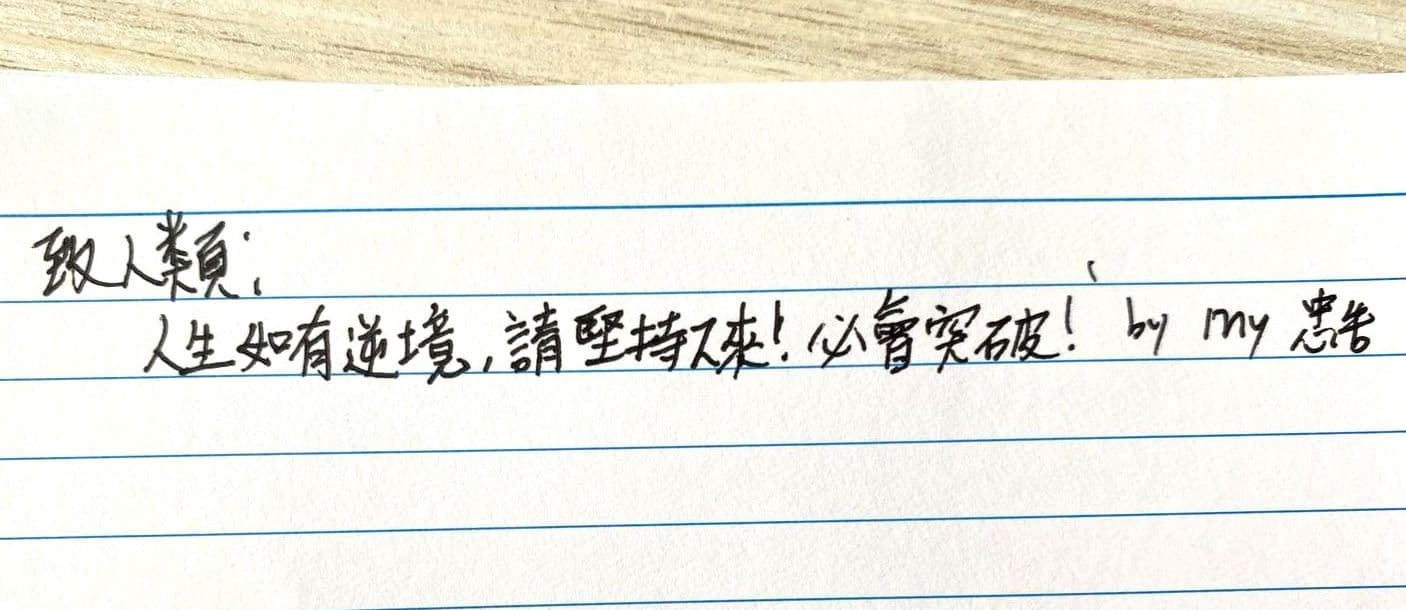 致人類:
人生如有逆境,請堅持下來!必會突破! by my 忠告